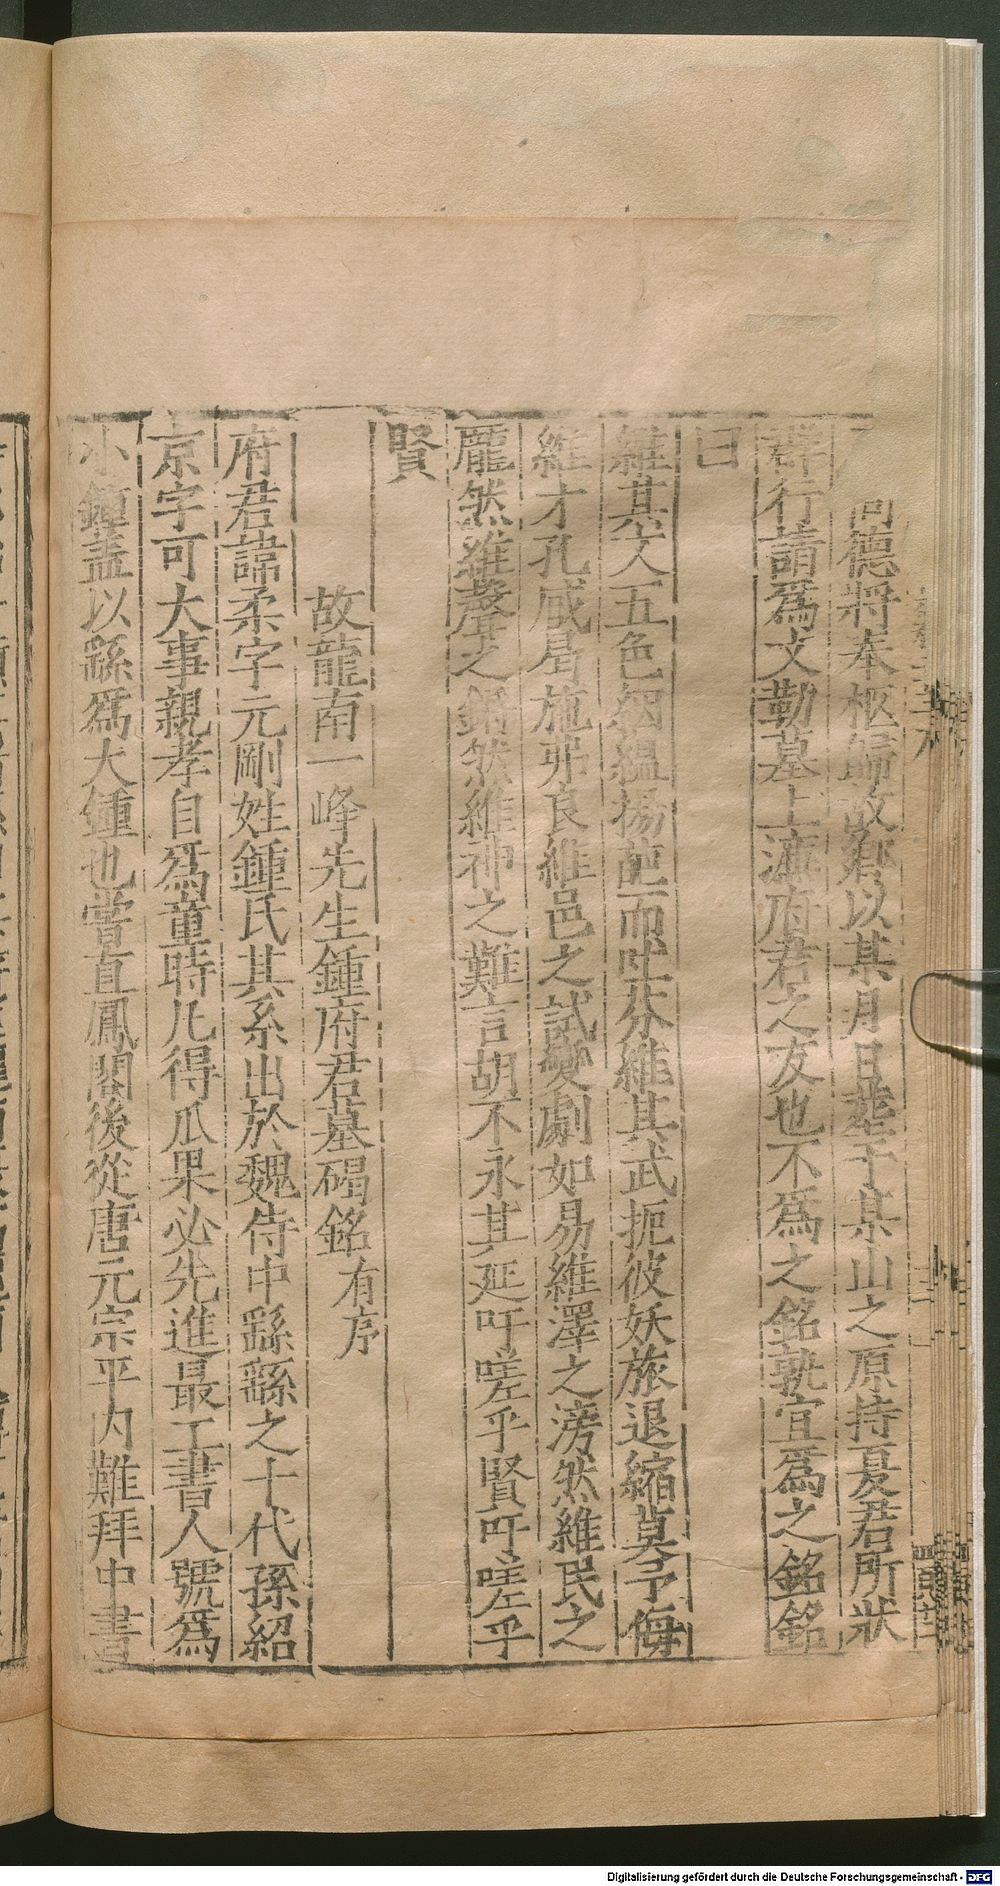 尚德將奉柩歸故鄉以某月日葬于某山之原持夏君所狀
群行請爲文勒墓上瀛府君之友也不爲之銘孰宜爲之銘銘
曰
維其文五色絪縕揚葩而吐芬維其武扼彼妖旅退縮莫予侮
維才孔咸曷施弗良維邑之試變劇如易維澤之滂然維民之
龐然維聲之鏘然維神之難言胡不永其延吁嗟乎賢吁嗟乎
賢
故龍南一峰先生鍾府君墓碣銘有序
府君諱柔字元剛姓鍾氏其系出於魏侍中繇繇之十代孫紹
京字可大事親孝自爲童時凡得瓜果必先進最工書人號爲
小鍾蓋以繇爲大鍾也嘗直鳳閣後從唐元宗平內難拜中書
Digitalisierung gefördert durch die Deutsche Forschungsgemeinschaft - DFG